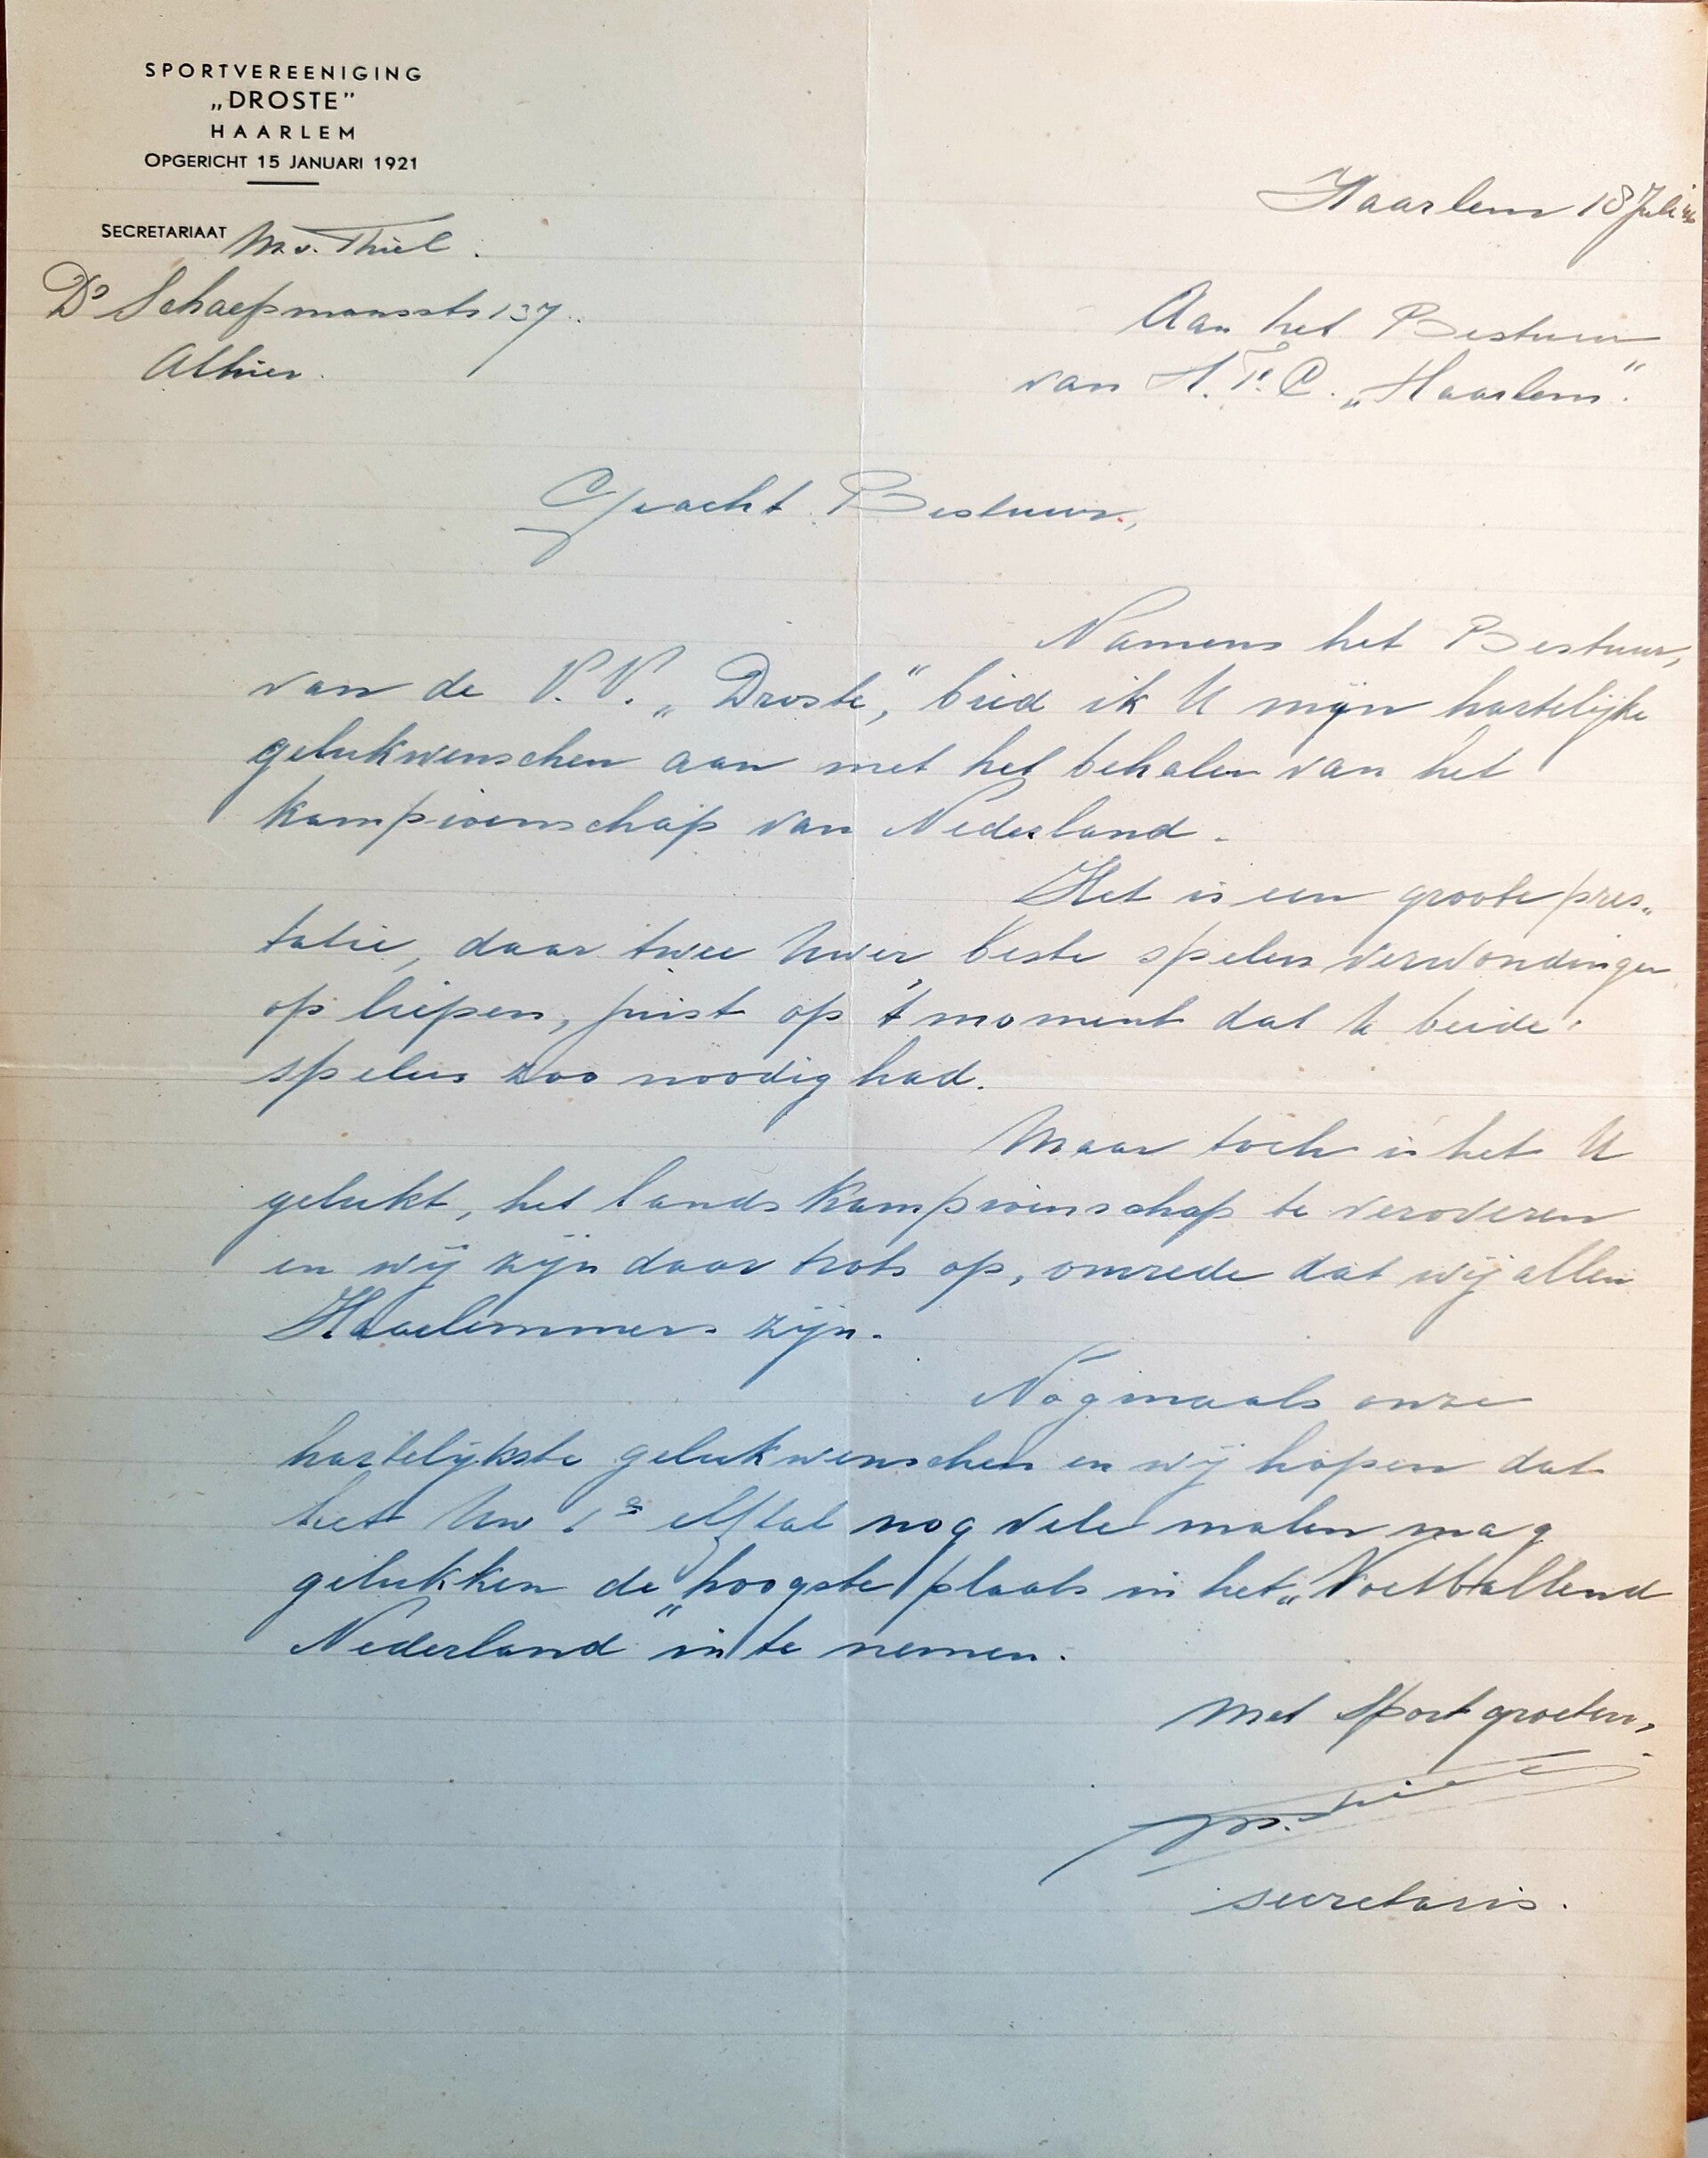 SPORTVEREENIGING
„DROSTE"
HAARLEM
OPGERICHT 15 JANUARI 1921
SECRETARIAAT M. v. Thiel.
Dr Schaepmansstr 137.
Alhier.
Haarlem 18 Juli '46
Aan het Bestuur
van H.F.C. „Haarlem".
Geacht Bestuur,
Namens het Bestuur,
van de V.V. „Droste", bied ik U mijn hartelijke
gelukwenschen aan met het behalen van het
kampioenschap van Nederland.
Het is een groote pres„
tatie, daar twee Uwer beste spelers verwondingen
op liepen, juist op 't moment dat U beide
spelers zoo noodig had.
Maar toch is het U
gelukt, het landskampioenschap te veroveren
en wij zijn daar trots op, omrede dat wij allen
Haarlemmers zijn.
Nogmaals onze
hartelijkste gelukwenschen en wij hopen dat
het Uw 1e elftal nog vele malen mag
gelukken de hoogste plaats in het „Voetballend
Nederland" in te nemen.
Met Sportgroeten,
M. v. Thiel
secretaris.